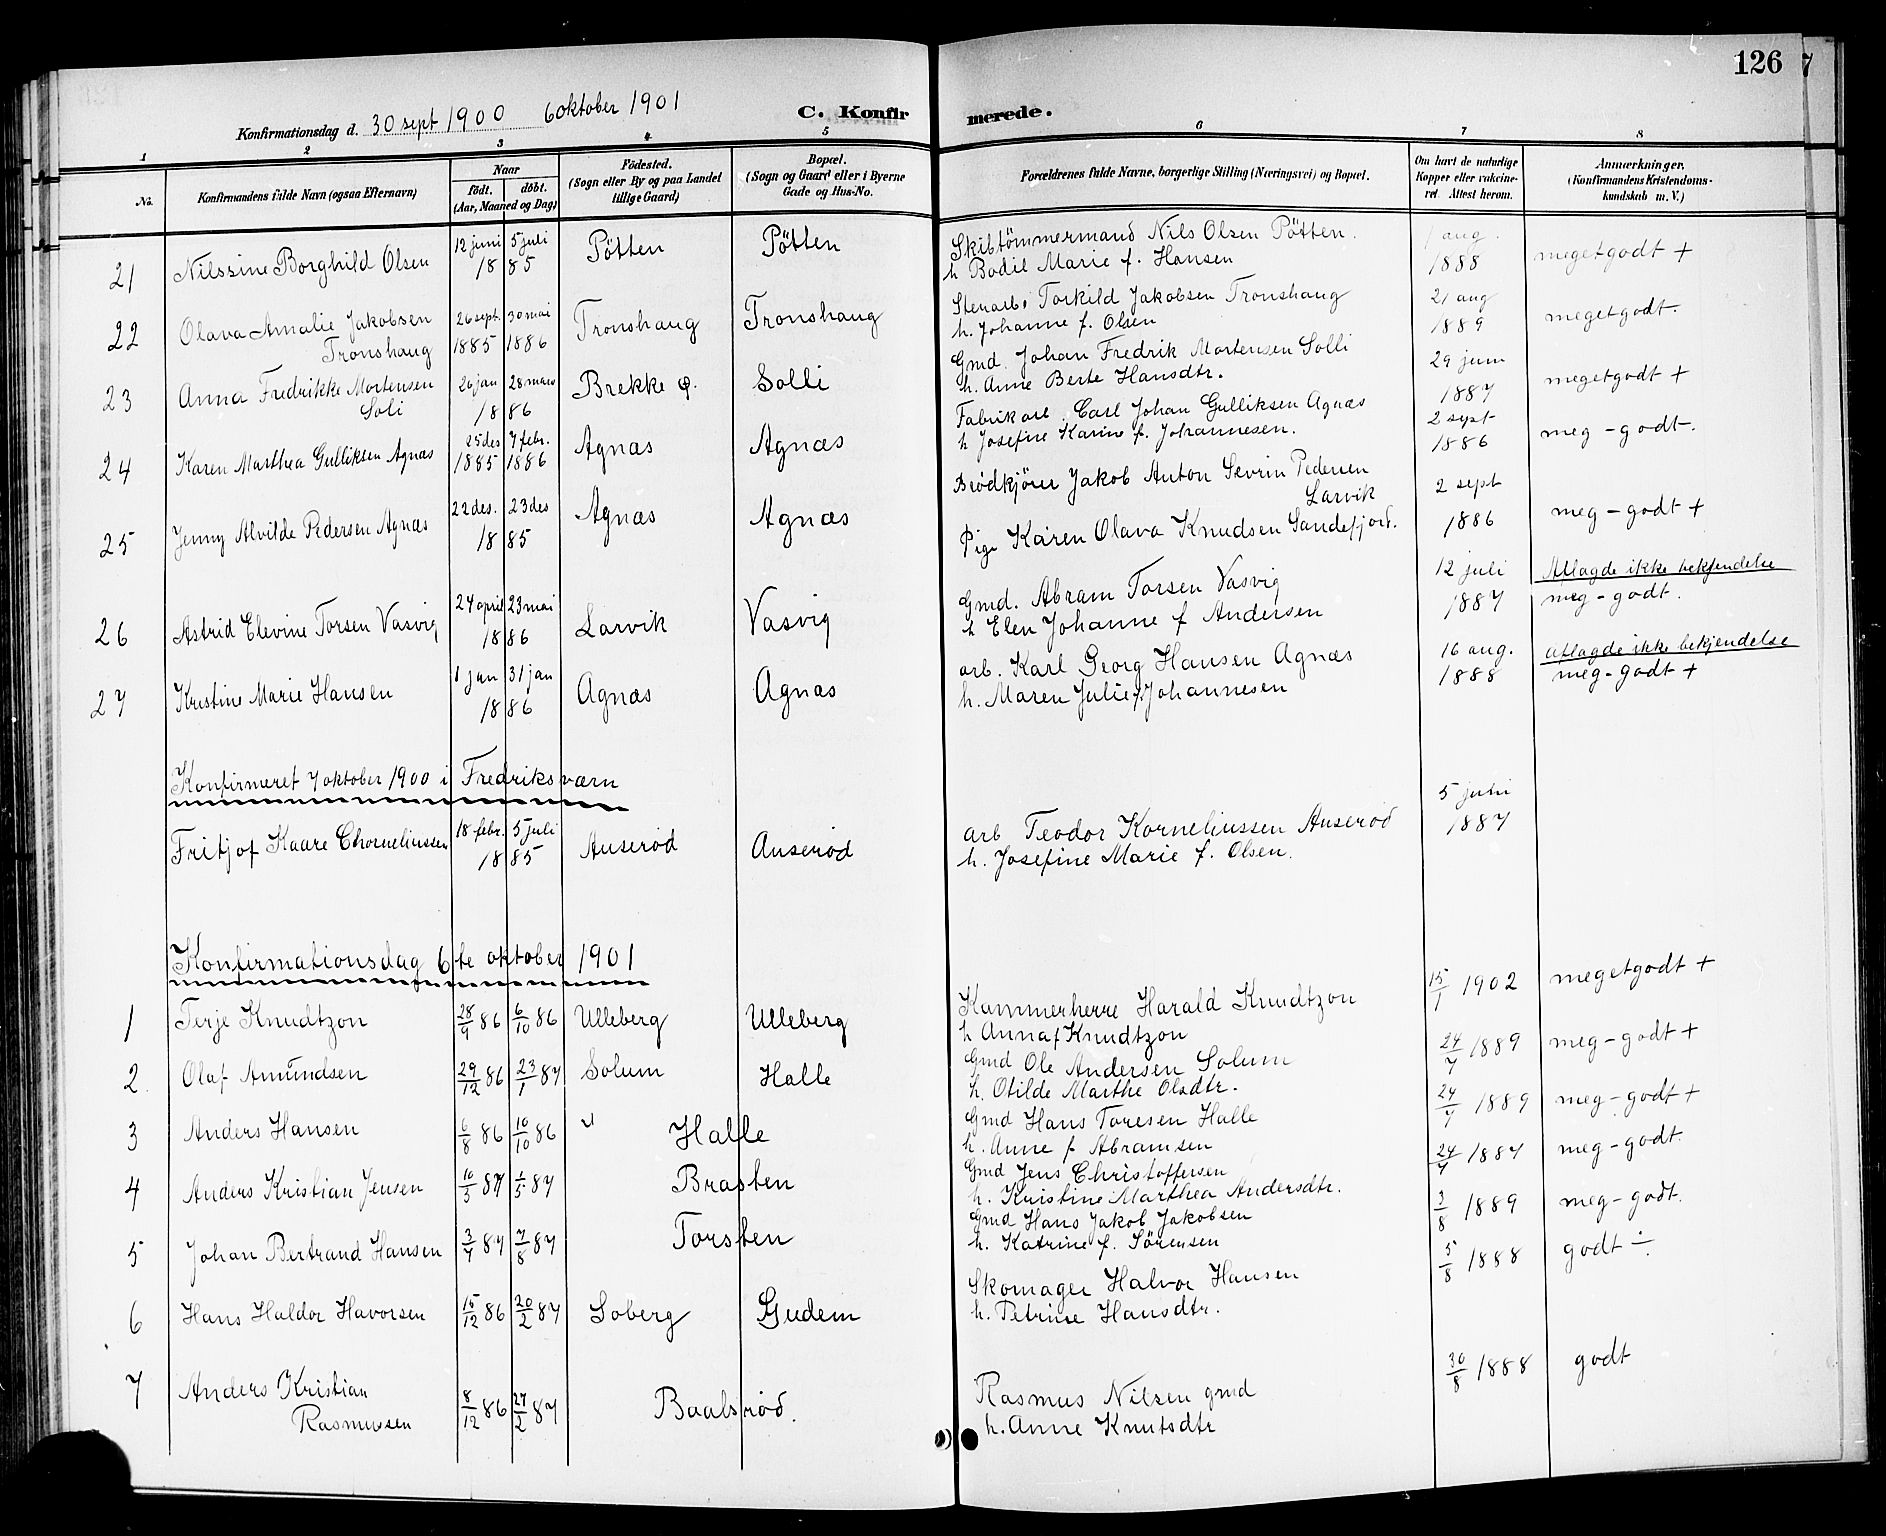 126
7
Konfirmationsdag d. 30 sept 1900 6 oktober 1901
C. Konfirmerede.
1 2 3 4 5 6 7 8
No.
Konfirmandens fulde Navn (ogsaa Efternavn)
Naar
født. døbt.
(Aar, Maaned og Dag)
Fødested.
(Sogn eller By og paa Landet
tillige Gaard)
Bopæl.
(Sogn og Gaard eller i Byerne
Gade og Hus-No.
Forældrenes fulde Navne, borgerlige Stilling (Næringsvei) og Bopæl.
Om havt de naturlige
Kopper eller vakcine-
ret. Attest herom.
Anmærkninger.
(Konfirmandens Kristendoms-
kundskab m. V.)
21 Nilssine Borghild Olsen 12 juni 5 juli 1885 Pøtten Pøtten
Skibtømmermand Nils Olsen Pøtten.
h Bodil Marie f. Hansen
1 aug. 1888 megetgodt +
22 Olava Amalie Jakobsen
Tronshaug
26 sept. 1885 30 mai 1886 Tronshaug Tronshaug
Stenarb. Torkild Jakobsen Tronshaug
h. Johanne f. Olsen
21 aug 1889 megetgodt.
23 Anna Fredrikke Mortensen
Soli
26 jan 28 mars 1886 Brekke p. Solli
Gmd. Johan Fredrik Mortensen Solli
h. Anne Berte Hansdtr.
29 juni 1887 megetgodt +
24 Karen Marthea Gulliksen Agnæs 25 des 1885 7 febr. 1886 Agnæs Agnæs
Fabrikarb. Carl Johan Gulliksen Agnæs
h Josefine Karine f. Johannesen.
2 sept 1886 meg-godt.
25 Jenny Alvilde Pedersen Agnæs 22 des. 23 des 1885 Agnæs Agnæs
Brødkjører Jakob Anton Sevrin Pedersen
Larvik
Pige Karen Olava Knudsen Sandefjord.
2 sept 1886 meg-godt +
26 Astrid Elevine Torsen Vasvig 24 april 23 mai 1886 Larvik Vasvig
Gmd. Abram Torsen Vasvig
h Elen Johanne f Andersen
12 juli 1887 Aflagde ikke bekjendelse
meg-godt.
27 Kristine Marie Hansen 1 jan 31 jan 1886 Agnæs Agnæs
arb. Karl Georg Hansen Agnæs
h. Maren Julie f. Johannesen
16 aug. 1888 aflagde ikke bekjendelse
meg-godt +
Konfirmeret 7 oktober 1900 i Fredriksværn
Fritjof Kaare Chorneliussen 18 febr. 5 juli 1885 Auserød Auserød
arb Teodor Korneliussen Auserød
h. Josefine Marie f. Olsen.
5 juli 1887
Konfirmationsdag 6te oktober 1901
1 Terje Knudtzon 28/9 86 6/10 86 Ulleberg Ulleberg
Kammerherre Harald Knudtzon
h Anna f Knudtzon
15/1 1902 megetgodt +
2. Olaf Amundsen 29/12 86 23/1 87 Solum Halle
Gmd Ole Andersen Solum
h. Otilde Marthe Olsdtr.
24/7 1889 meg-godt +
3 Anders Hansen 6/8 86 10/10 86 Halle
Gmd Hans Toresen Halle
h. Anne f Abramsen
24/7 1889 meg-godt +
4 Anders Kristian Jensen 10/3 87 1/5 87 Brasten
Gmd Jens Christoffersen
h. Kristine Marthea Andersdtr.
24/7 1887 meg-godt.
5 Johan Bertrand Hansen 3/7 87 7/8 87 Torsten
Gmd Hans Jakob Jakobsen
h. Katrine f. Sørensen
3/8 1889 meg-godt.
6 Hans Haldor Havorsen 15/12 86 20/2 87 Soberg Gudem
Skomager Halvor Hansen
h. Petrine Hansdtr.
5/8 1888 godt ÷
7 Anders Kristian
Rasmussen
8/12 86 27/2 87 Baalsrød.
Rasmus Nilsen gmd
h. Anne Knutsdtr
30/8 1888 godt